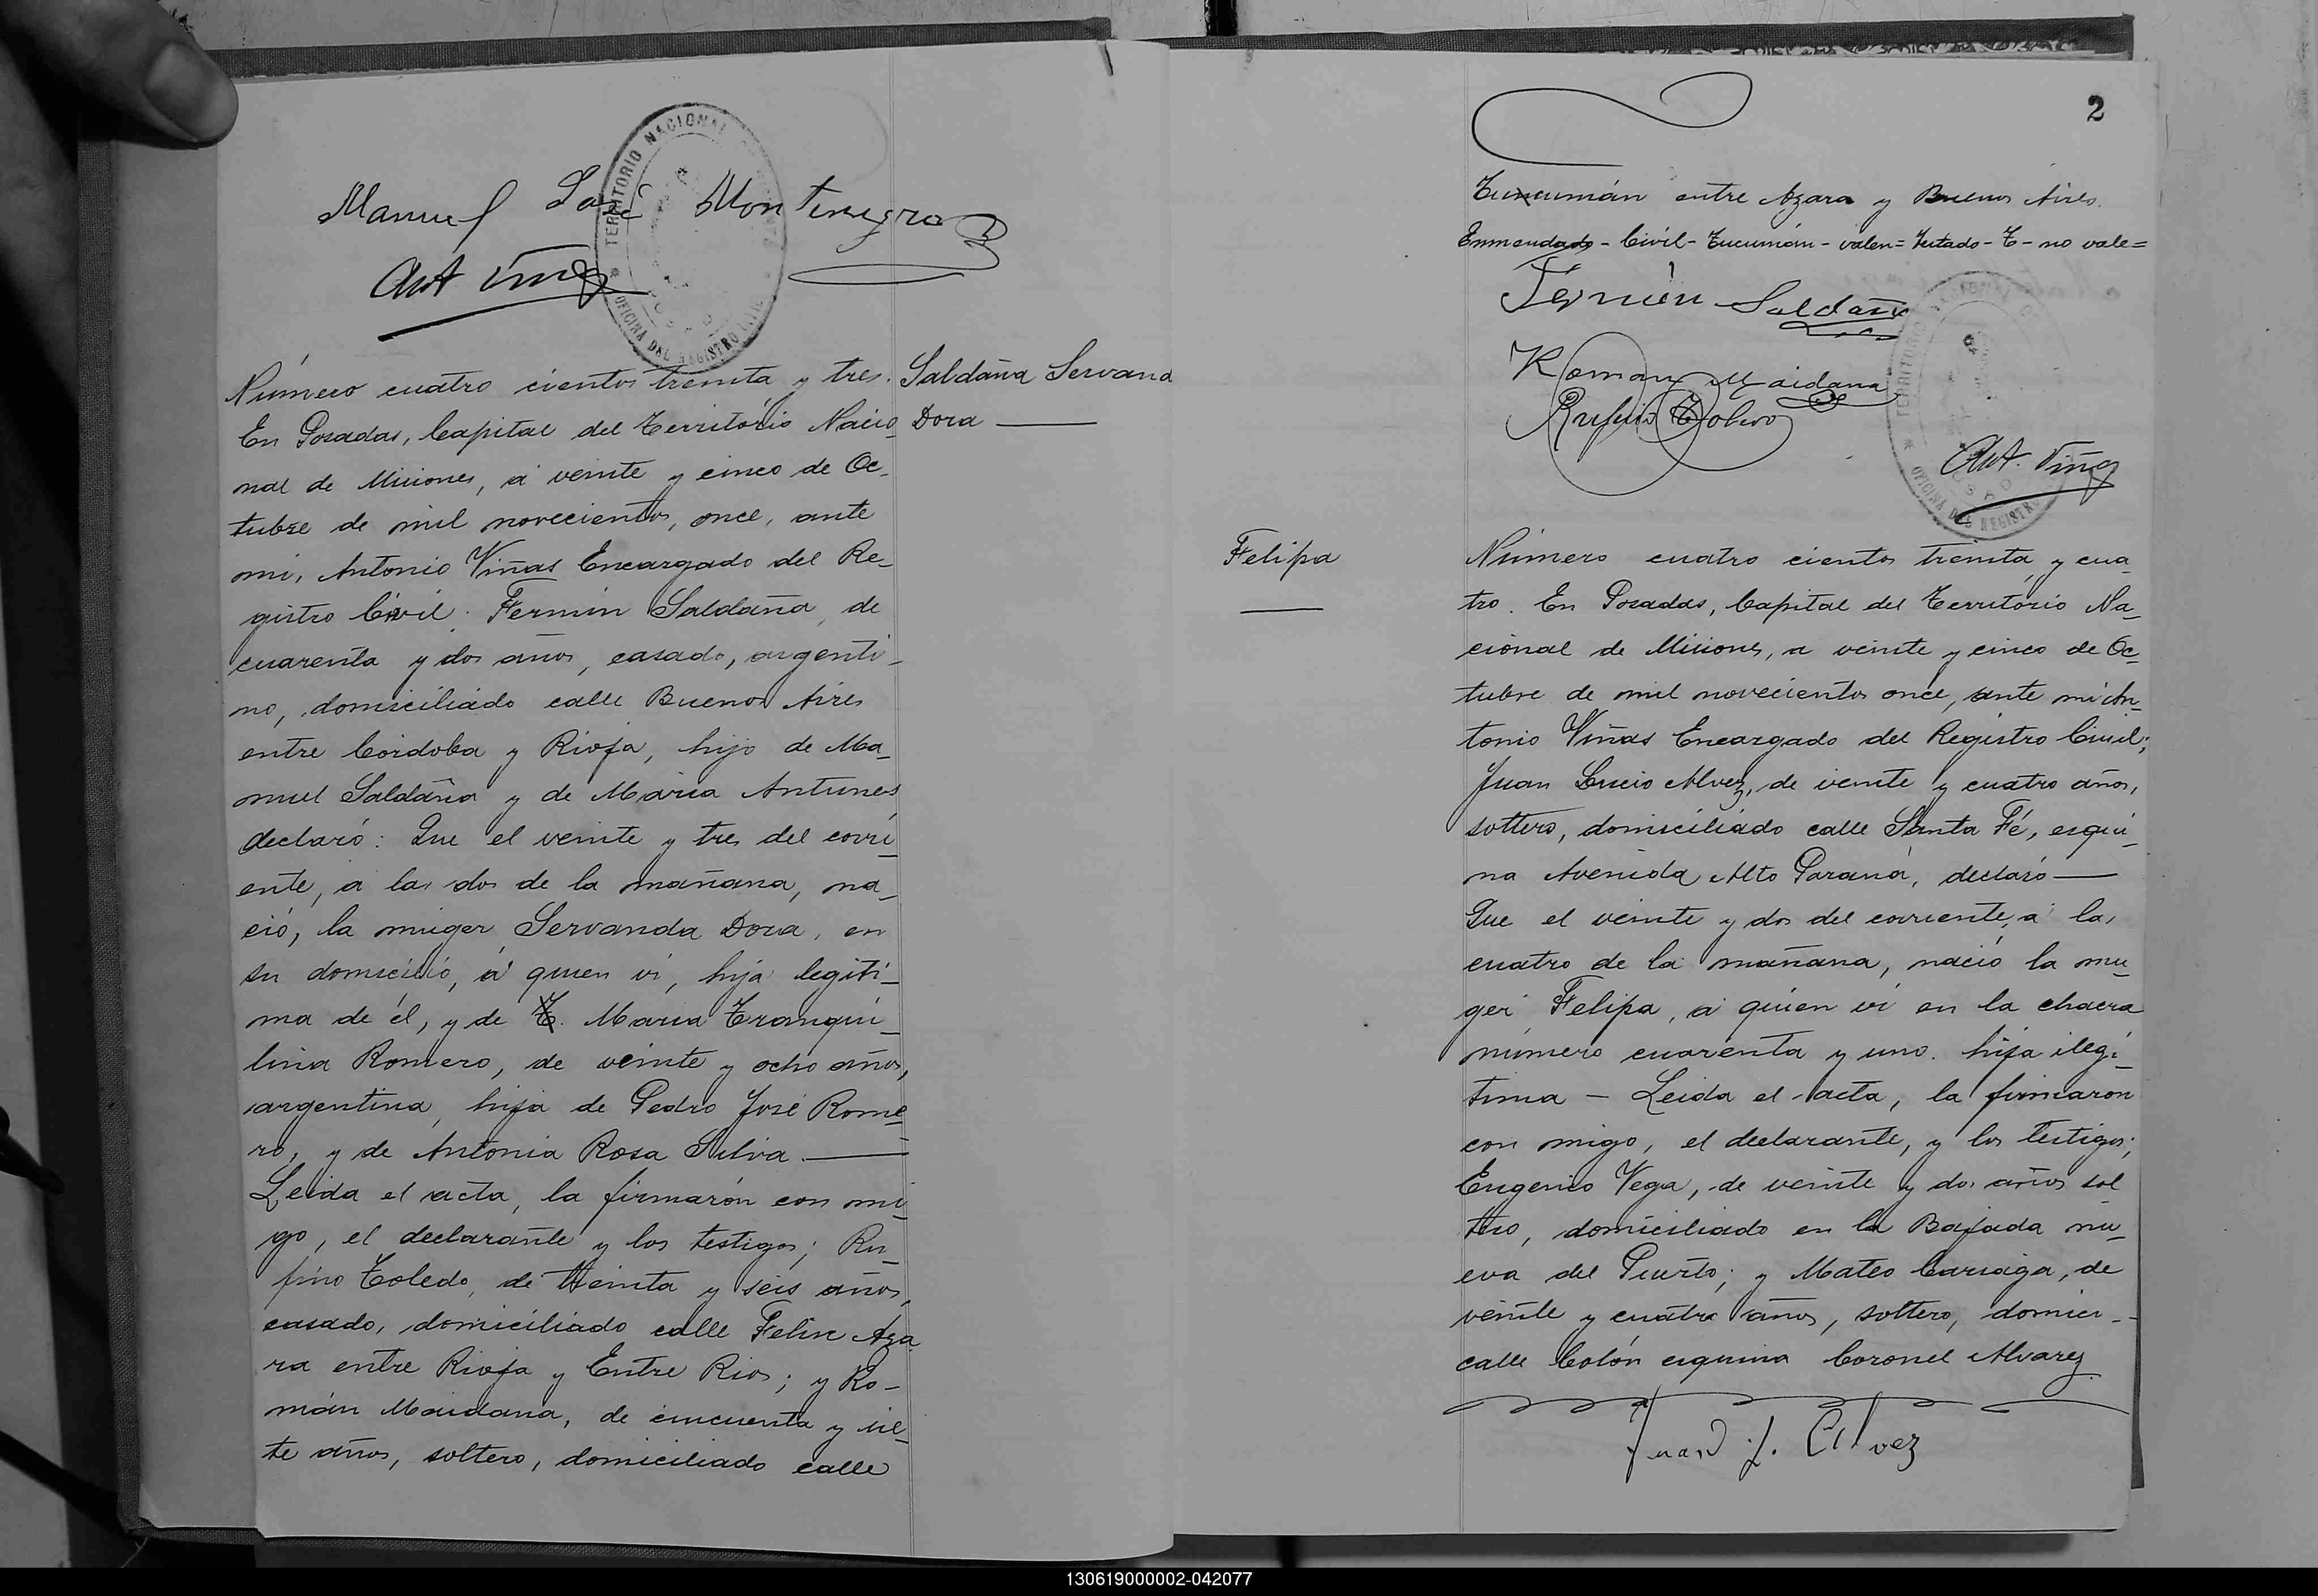 Manuel José Montenegro
Ant Viñas
TERRITORIO NACIONAL
OFICINA DEL REGISTRO CIVIL
Número cuatro cientos treinta y tres.
Saldaña Servand
Dora
En Posadas, Capital del Território Nacio-
nal de Misiones, á veinte y cinco de Oc-
tubre de mil novecientos, once, ante
mi, Antonio Viñas Encargado del Re-
gistro Civil. Fermin Saldaña, de
cuarenta y dos años, casado, argenti-
no, domiciliado calle Buenos Aires
entre Córdoba y Rioja, hijo de Ma-
nuel Saldaña y de Maria Antunes
declaró: Que el veinte y tres del corri-
ente, a las dos de la mañana, na-
ció, la muger Servanda Dora, en
su domicilio, á quien vi, hija legiti-
ma de él, y de T. Maria Tranqui-
lina Romero, de veinte y ocho años,
argentina, hija de Pedro José Rome-
ro, y de Antonia Rosa Silva.
Leida el acta, la firmarón con mi-
go, el declarante y los testigos; Ru-
fino Toledo, de treinta y seis años,
casado, domiciliado calle Felix Aza
ra entre Rioja y Entre Rios; y Ro-
mán Maidana, de cincuenta y sie-
te años, soltero, domiciliado calle
2
Tucumán entre Azara y Buenos Aires.
Enmendado - Civil - Tucumán - valen = Testado - T - no vale =
Fermin Saldaña
Roman Maidana
Rufino Toledo
TERRITORIO NACIONAL
OFICINA DEL REGISTRO
Ant. Viñas
Felipa
Número cuatro cientos treinta y cua-
tro. En Posadas, Capital del Territorio Na-
cional de Misiones, a veinte y cinco de Oc-
tubre de mil novecientos once, ante mi An-
tonio Viñas Encargado del Registro Civil;
Juan Lucio Alvez, de veinte y cuatro años,
soltero, domiciliado calle Santa Fé, esqui-
na Avenida Alto Paraná, declaró
Que el veinte y dos del corriente, á las
cuatro de la mañana, nació la mu-
ger Felipa, á quien vi en la chacra
número cuarenta y uno. hija ilegi-
tima - Leida el acta, la firmaron
con migo, el declarante, y los testigos;
Eugenio Vega, de veinte y dos años sol
tero, domiciliado en la Bajada nu-
eva del Puerto; y Mateo Cariaga, de
veinte y cuatro años, soltero, domici--
calle Colón esquina Coronel Alvarez
Juan L. Alvez
130619000002-042077